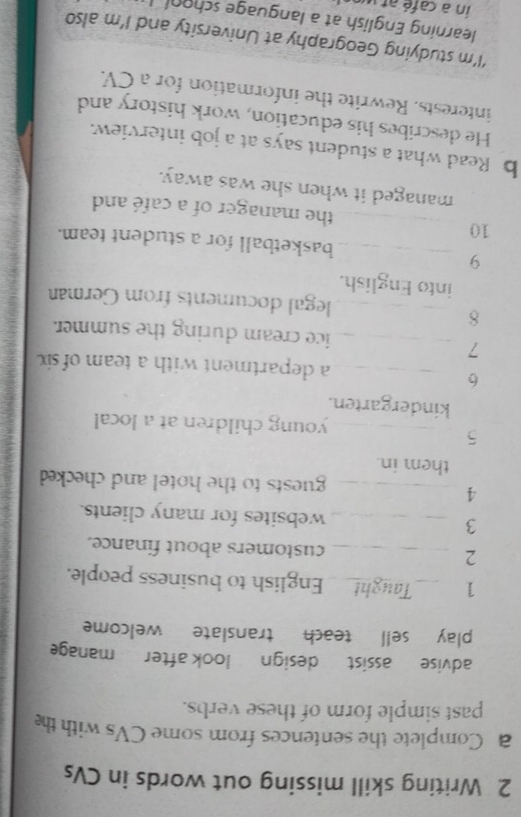 2 Writing skill missing out words in CVs
a Complete the sentences from some CVs with the
past simple form of these verbs.
advise assist design look after manage
play sell teach translate welcome
1 Taught English to business people.
2 ________ customers about finance.
3 ________ websites for many clients.
4 ________ guests to the hotel and checked
them in.
5 ________ young children at a local
kindergarten.
6 ________ a department with a team of six.
7 ________ ice cream during the summer.
8 ________ legal documents from German
into English.
9 ________ basketball for a student team.
10 ________ the manager of a café and
managed it when she was away.
b Read what a student says at a job interview.
He describes his education, work history and
interests. Rewrite the information for a CV.
'I'm studying Geography at University and I'm also
learning English at a language school.
in a café at